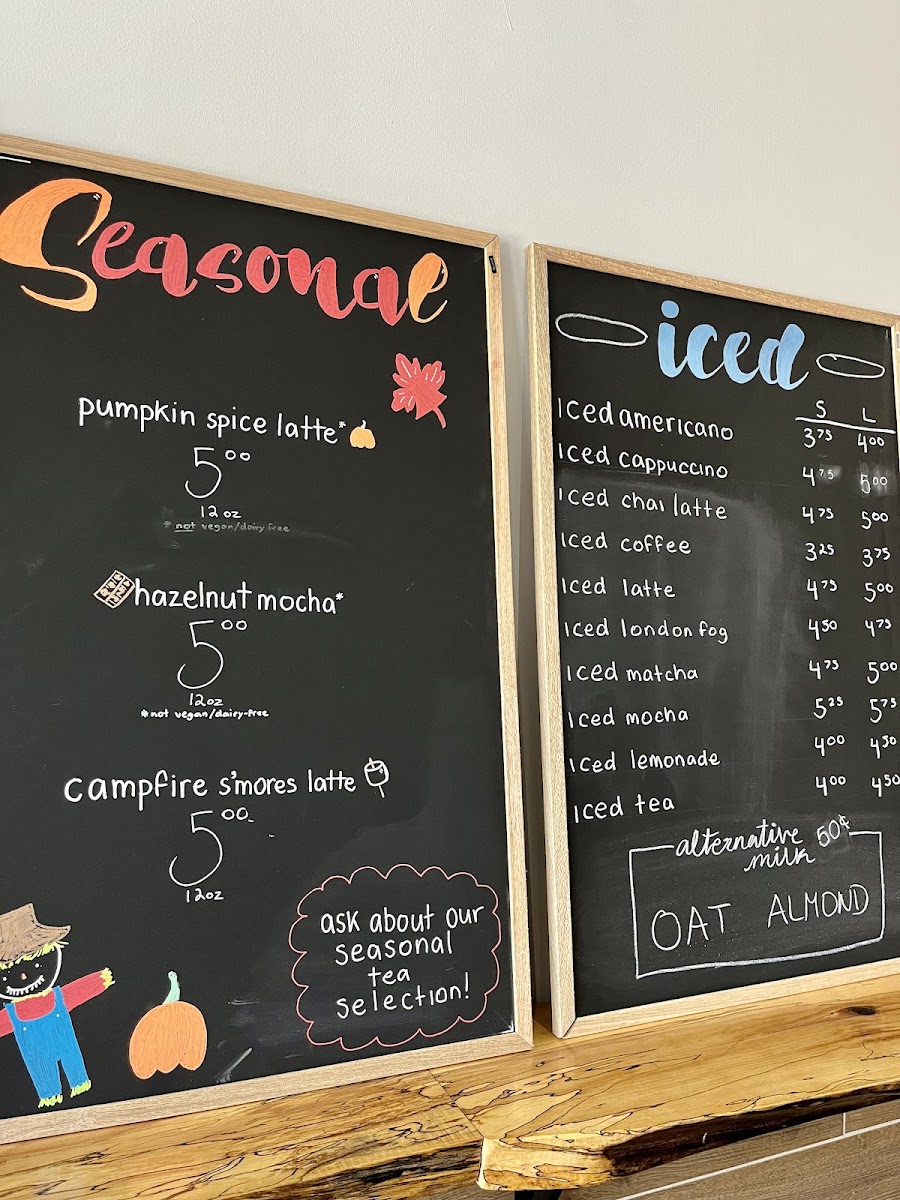 Seasonal
pumpkin spice latte*
5⁰⁰
12 oz
* not vegan/dairy free
hazelnut mocha*
5⁰⁰
12oz
*not vegan/dairy-free
campfire s'mores latte
5⁰⁰
12oz
ask about our
seasonal
tea
selection!
iced
S L
Iced americano 3⁷⁵ 4⁰⁰
Iced cappuccino 4⁷⁵ 5⁰⁰
Iced chai latte 4⁷⁵ 5⁰⁰
Iced coffee 3²⁵ 3⁷⁵
Iced latte 4⁷⁵ 5⁰⁰
Iced london fog 4⁵⁰ 4⁷⁵
Iced matcha 4⁷⁵ 5⁰⁰
Iced mocha 5²⁵ 5⁷⁵
Iced lemonade 4⁰⁰ 4⁵⁰
Iced tea 4⁰⁰ 4⁵⁰
alternative 50¢
milk
OAT ALMOND